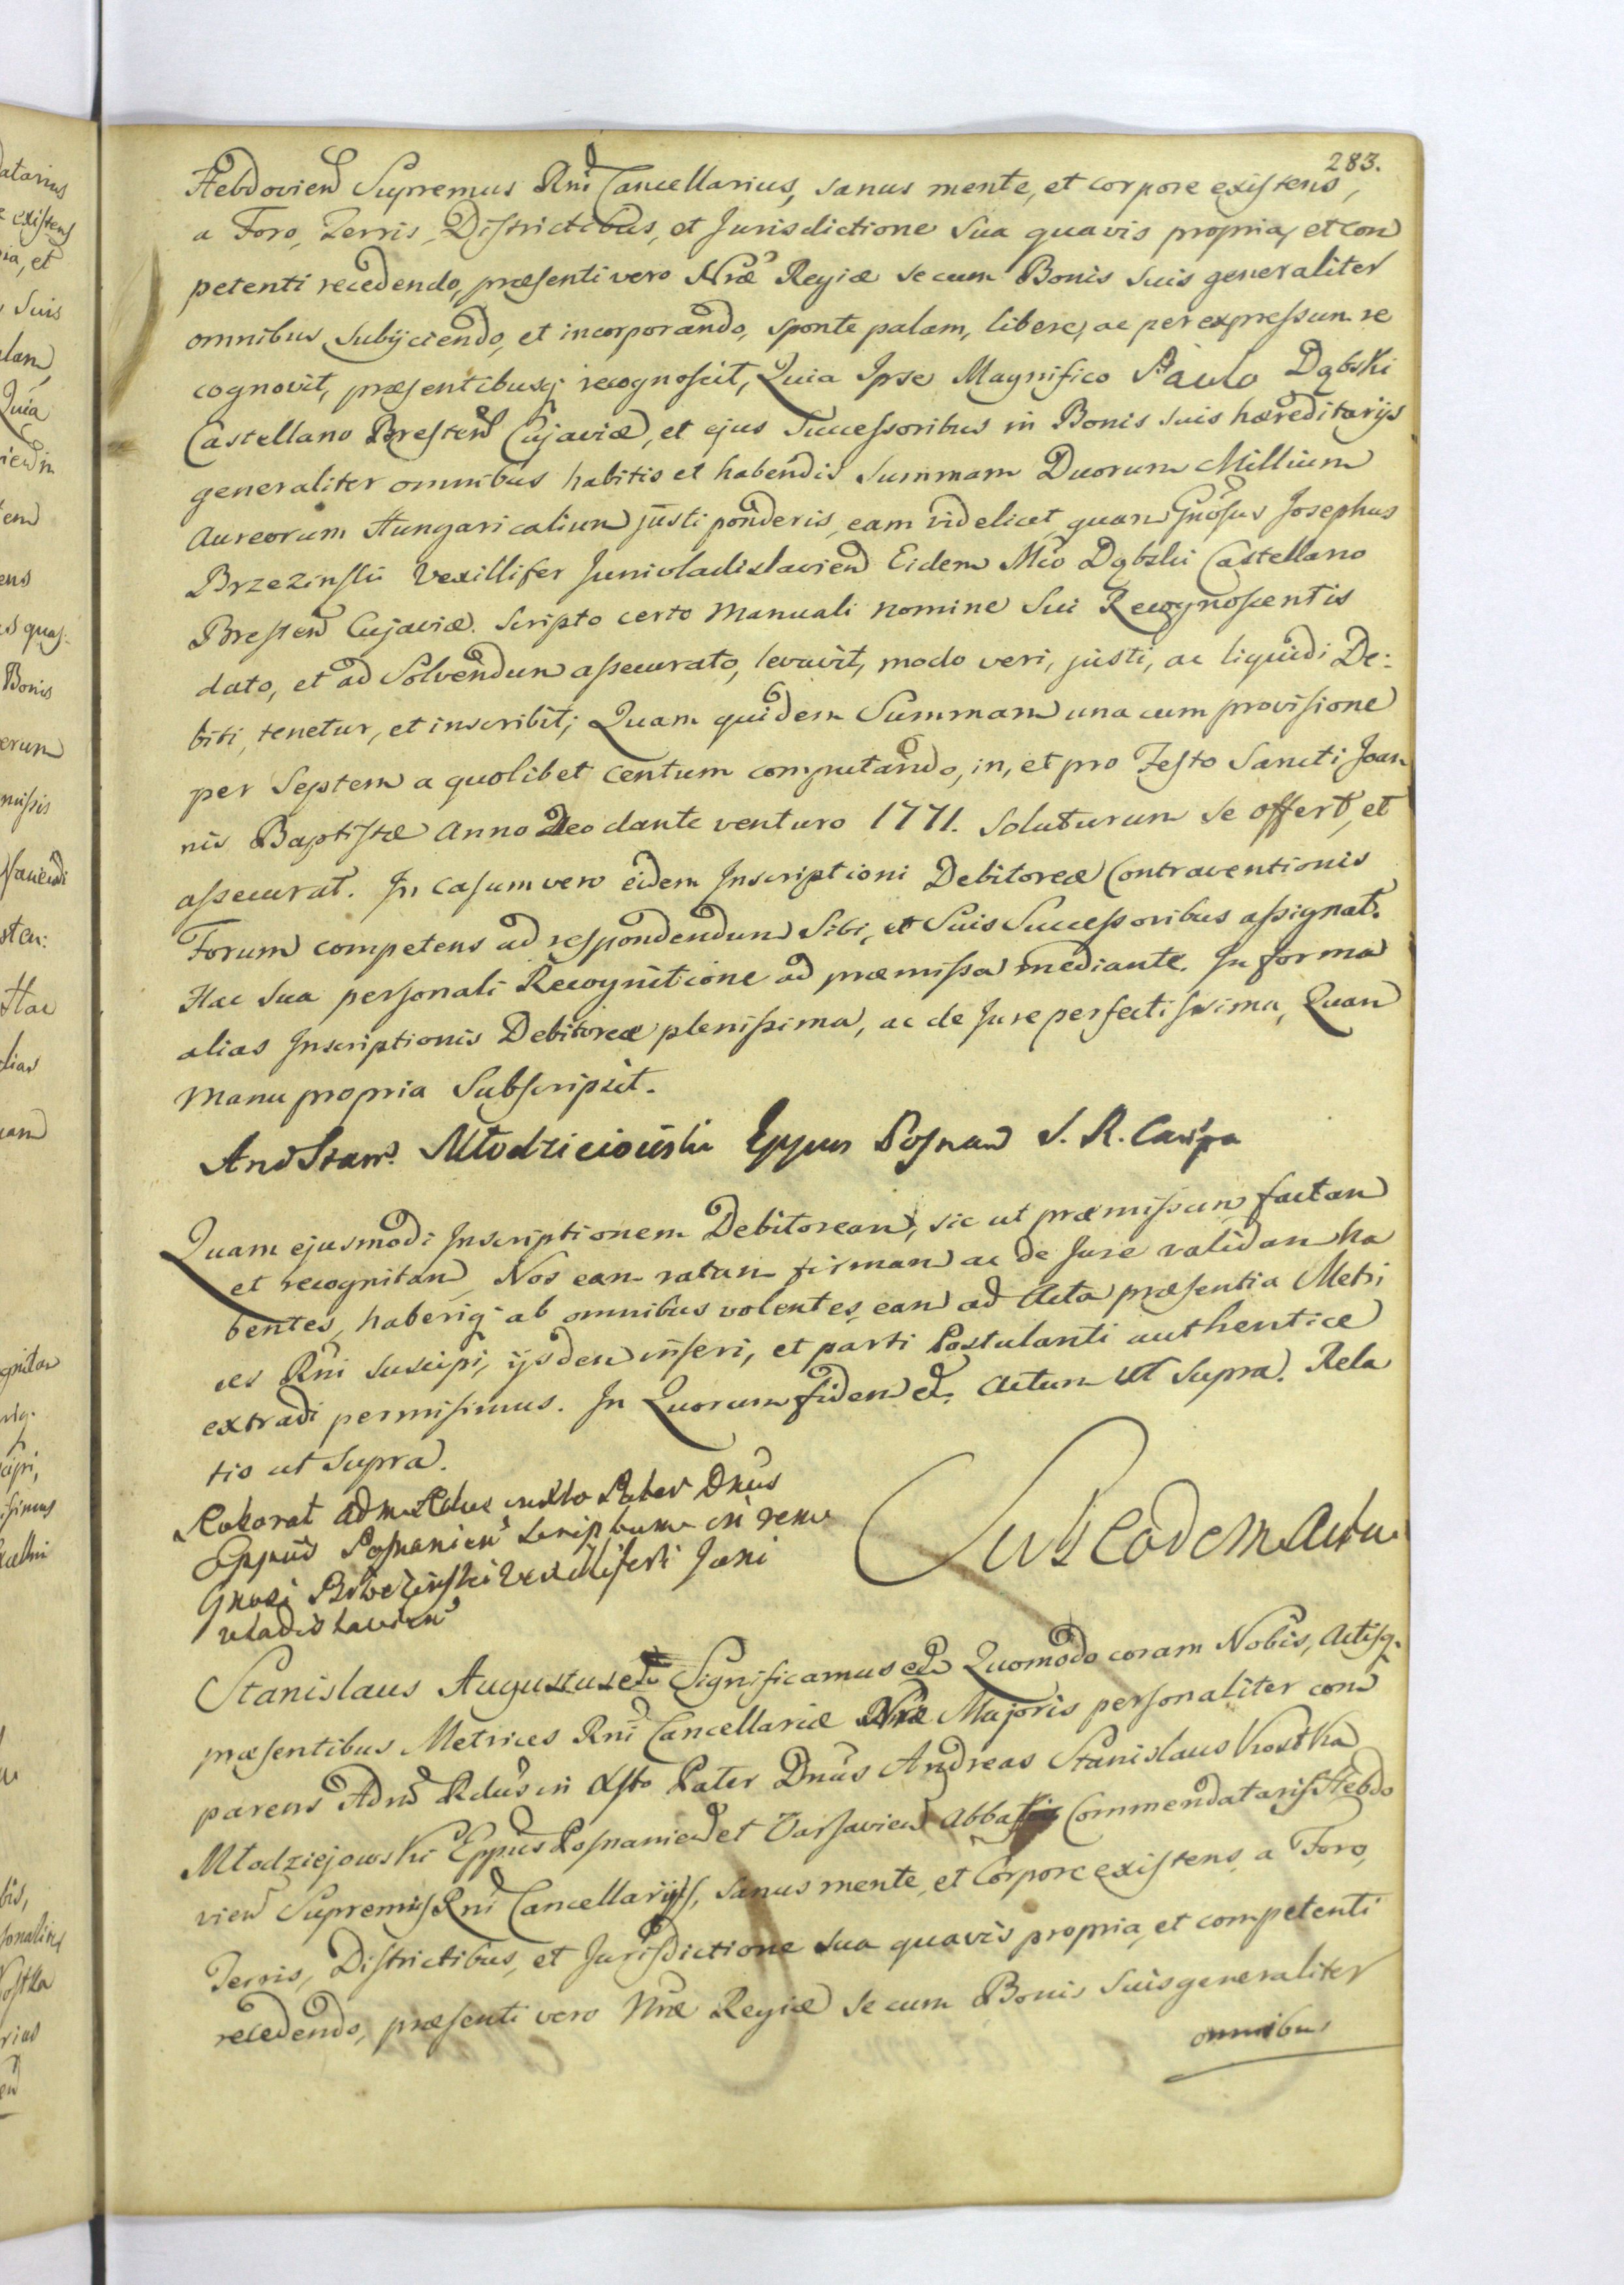 283.
Hebdovien Supremus Rni Cancellarius, sanus mente, et corpore existens,
a Foro, Terris, Districtibus, et Jurisdictione sua quavis propria, et con
petenti recedendo, præsenti vero Nræ Regiæ se cum Bonis suis generaliter
omnibus subijciendo, et incorporando, sponte palam, libere, ac per expressum re
cognovit, præsentibusq; recognoscit, Quia Ipse Magnifico Paulo Dąbski
Castellano Bresten Cujaviæ, et ejus Successoribus in Bonis suis hæreditarijs
generaliter omnibus habitis et habendis Summam Duorum Millium
Aureorum Hungaricalium justi ponderis, eam videlicet quam Gnosus Josephus
Brzezinski Vexillifer Junivladislavien Eidem Mco Dąbski Castellano
Bresten Cujaviæ. Scripto certo Manuali nomine Sui Recognoscentis
dato, et ad Solvendum assecurato, levavit, modo veri, justi, ac liquidi De:
biti, tenetur, et inscribit; Quam quidem Summam una cum provisione
per Septem a quolibet centum computando, in, et pro Festo Sancti Joan
nis Baptistæ Anno Deo dante venturo 1771. Soluturum se offert, et
assecurat. In Casum vero eidem Inscriptioni Debitoreæ Contraventionis
Forum competens ad respondendum Sibi, et Suis Successoribus assignat.
Hac sua personali Recognitione ad præmissa mediante. In forma
alias Inscriptionis Debitoreæ plenissima, ac de Jure perfectissima, Quam
Manu propria Subscripsit.
And Stan. Młodzieiowski Eppus Posnan S. R.
Quam ejusmodi Inscriptionem Debitoream, sic ut præmissum factam
et recognitam, Nos eam ratam firmam ac de Jure validam ha
bentes, haberiq; ab omnibus volentes, eam ad Acta præsentia Metri
ces Rni suscipi, ijsdem inseri, et parti Postulanti authentice
extradi permisimus. In Quorum fidem et. Actum ut supra. Rela
tio ut Supra.
Pater Dnus
Eppus Posnanien Scriptum in rem
Gnosi Brzezinski Vexilliferi Juni
vladislavien
Sub Eodem Actu
Stanislaus Augustus et Significamus et Quomodo coram Nobis, Actisq.
præsentibus Metrices Rni Cancellariæ Nræ Majoris personaliter con
parens Adm Rdus in Xsto Pater Dnus Andreas Stanislaus Kostka
Młodziejowski Eppus Posnanien et Varsavien Commendataris Hebdo
vien Supremus Rni Cancellarijs, sanus mente, et Corpore existens, a Foro,
Terris, Districtibus, et Jurisdictione sua quavis propria, et competenti
recedendo, præsenti vero Nræ Regiæ se cum Bonis suis generaliter
omnibus